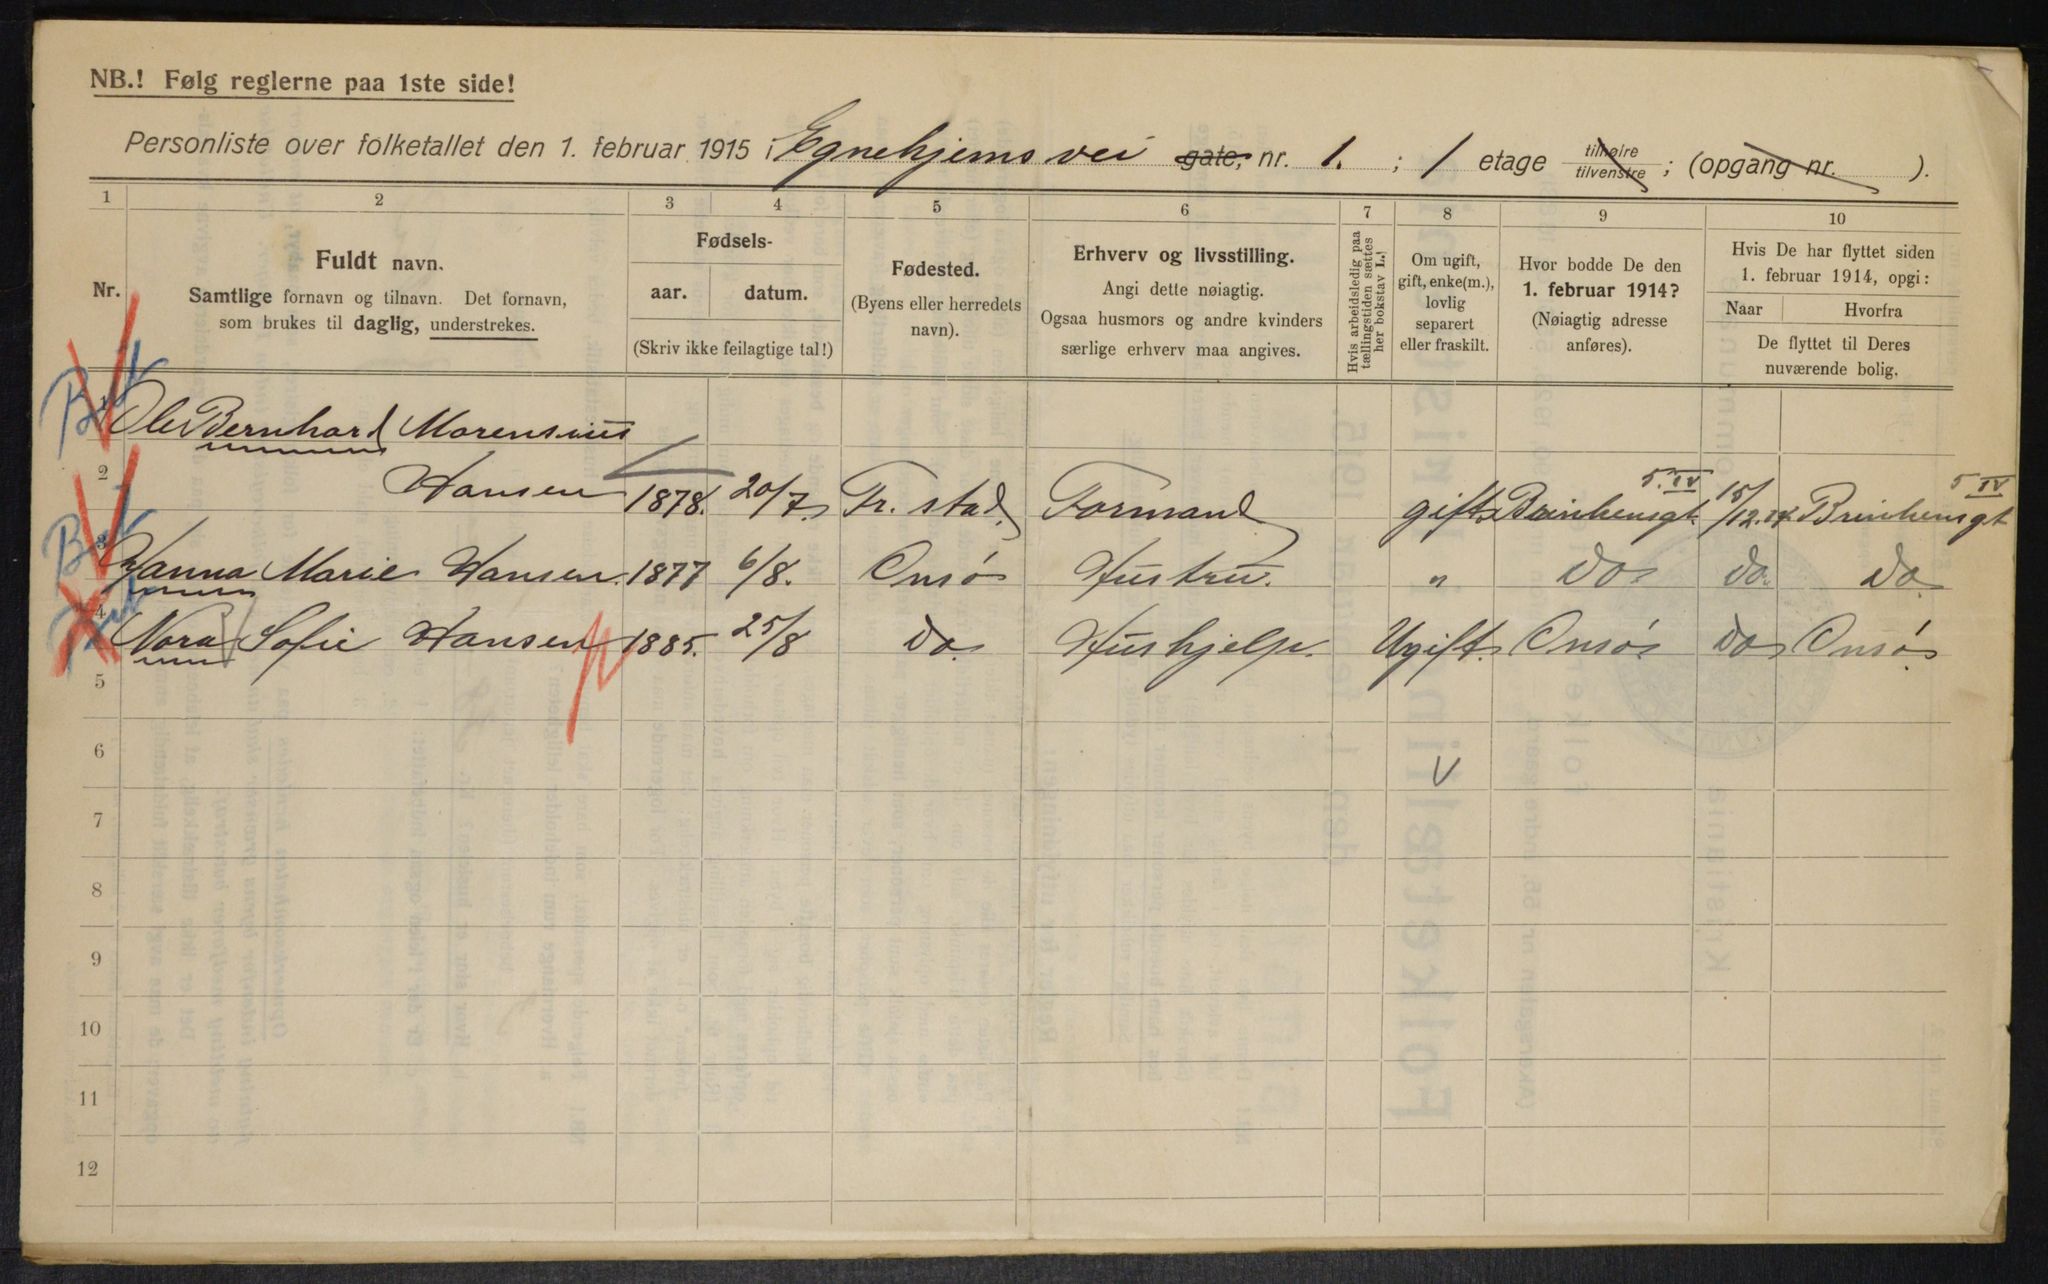 NB.! Følg reglerne paa 1ste side!
Personliste over folketallet den 1. februar 1915 i Egnehjems vei gate, nr. 1. ; 1 etage tilhøire tilvenstre ; (opgang nr. ).
1 2 3 4 5 6 7 8 9 10
Nr.
Fuldt navn.
Samtlige fornavn og tilnavn. Det fornavn,
som brukes til daglig, understrekes.
Fødsels-
aar. datum.
(Skriv ikke feilagtige tal!)
Fødested.
(Byens eller herredets
navn).
Erhverv og livsstilling.
Angi dette nøiagtig.
Ogsaa husmors og andre kvinders
særlige erhverv maa angives.
Hvis arbeidsledig paa
tællingstiden sættes
her bokstav L.!
Om ugift,
gift, enke(m.),
lovlig
separert
eller fraskilt.
Hvor bodde De den
1. februar 1914?
(Nøiagtig adresse
anføres).
Hvis De har flyttet siden
1. februar 1914, opgi:
Naar Hvorfra
De flyttet til Deres
nuværende bolig.
1 Ole Bernhard Morensius
2 Hansen 1878. 20/7. Fr. stad. Formand gift. Brinkensgt. 5. IV 15/12.14. Brinkensgt 5 IV
3 Hanna Marie Hansen. 1877 6/8. Onsø Hustru. " Do Do. Do.
4 Nora Sofie Hansen 1885. 25/8 Do. Hushjelp. Ugift. Onsø. Do Onsø.
5
6
7
8
9
10
11
12